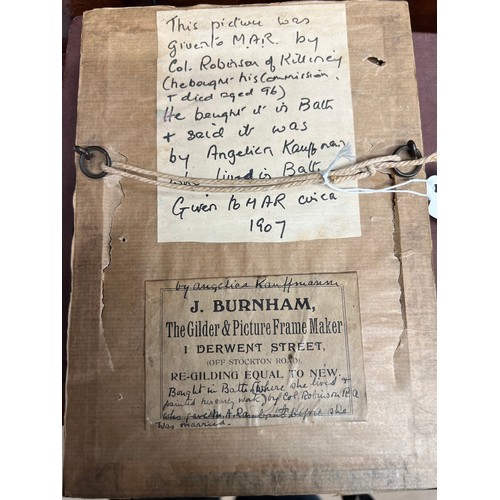 This picture was
given to M.A.R. by
Col. Robinson of Killiney
(he bought his commission,
+ died aged 96)
He bought it in Bath
+ said it was
by Angelica Kauffman
lived in Bath
Given to MAR circa
1907
by Angelica Kauffmann
J. BURNHAM,
The Gilder & Picture Frame Maker
1 DERWENT STREET,
(OFF STOCKTON ROAD),
RE-GILDING EQUAL TO NEW.
Bought in Bath (where she lived +
painted work) by Col. Robinson R.A
who gave M.A. before she
was married.